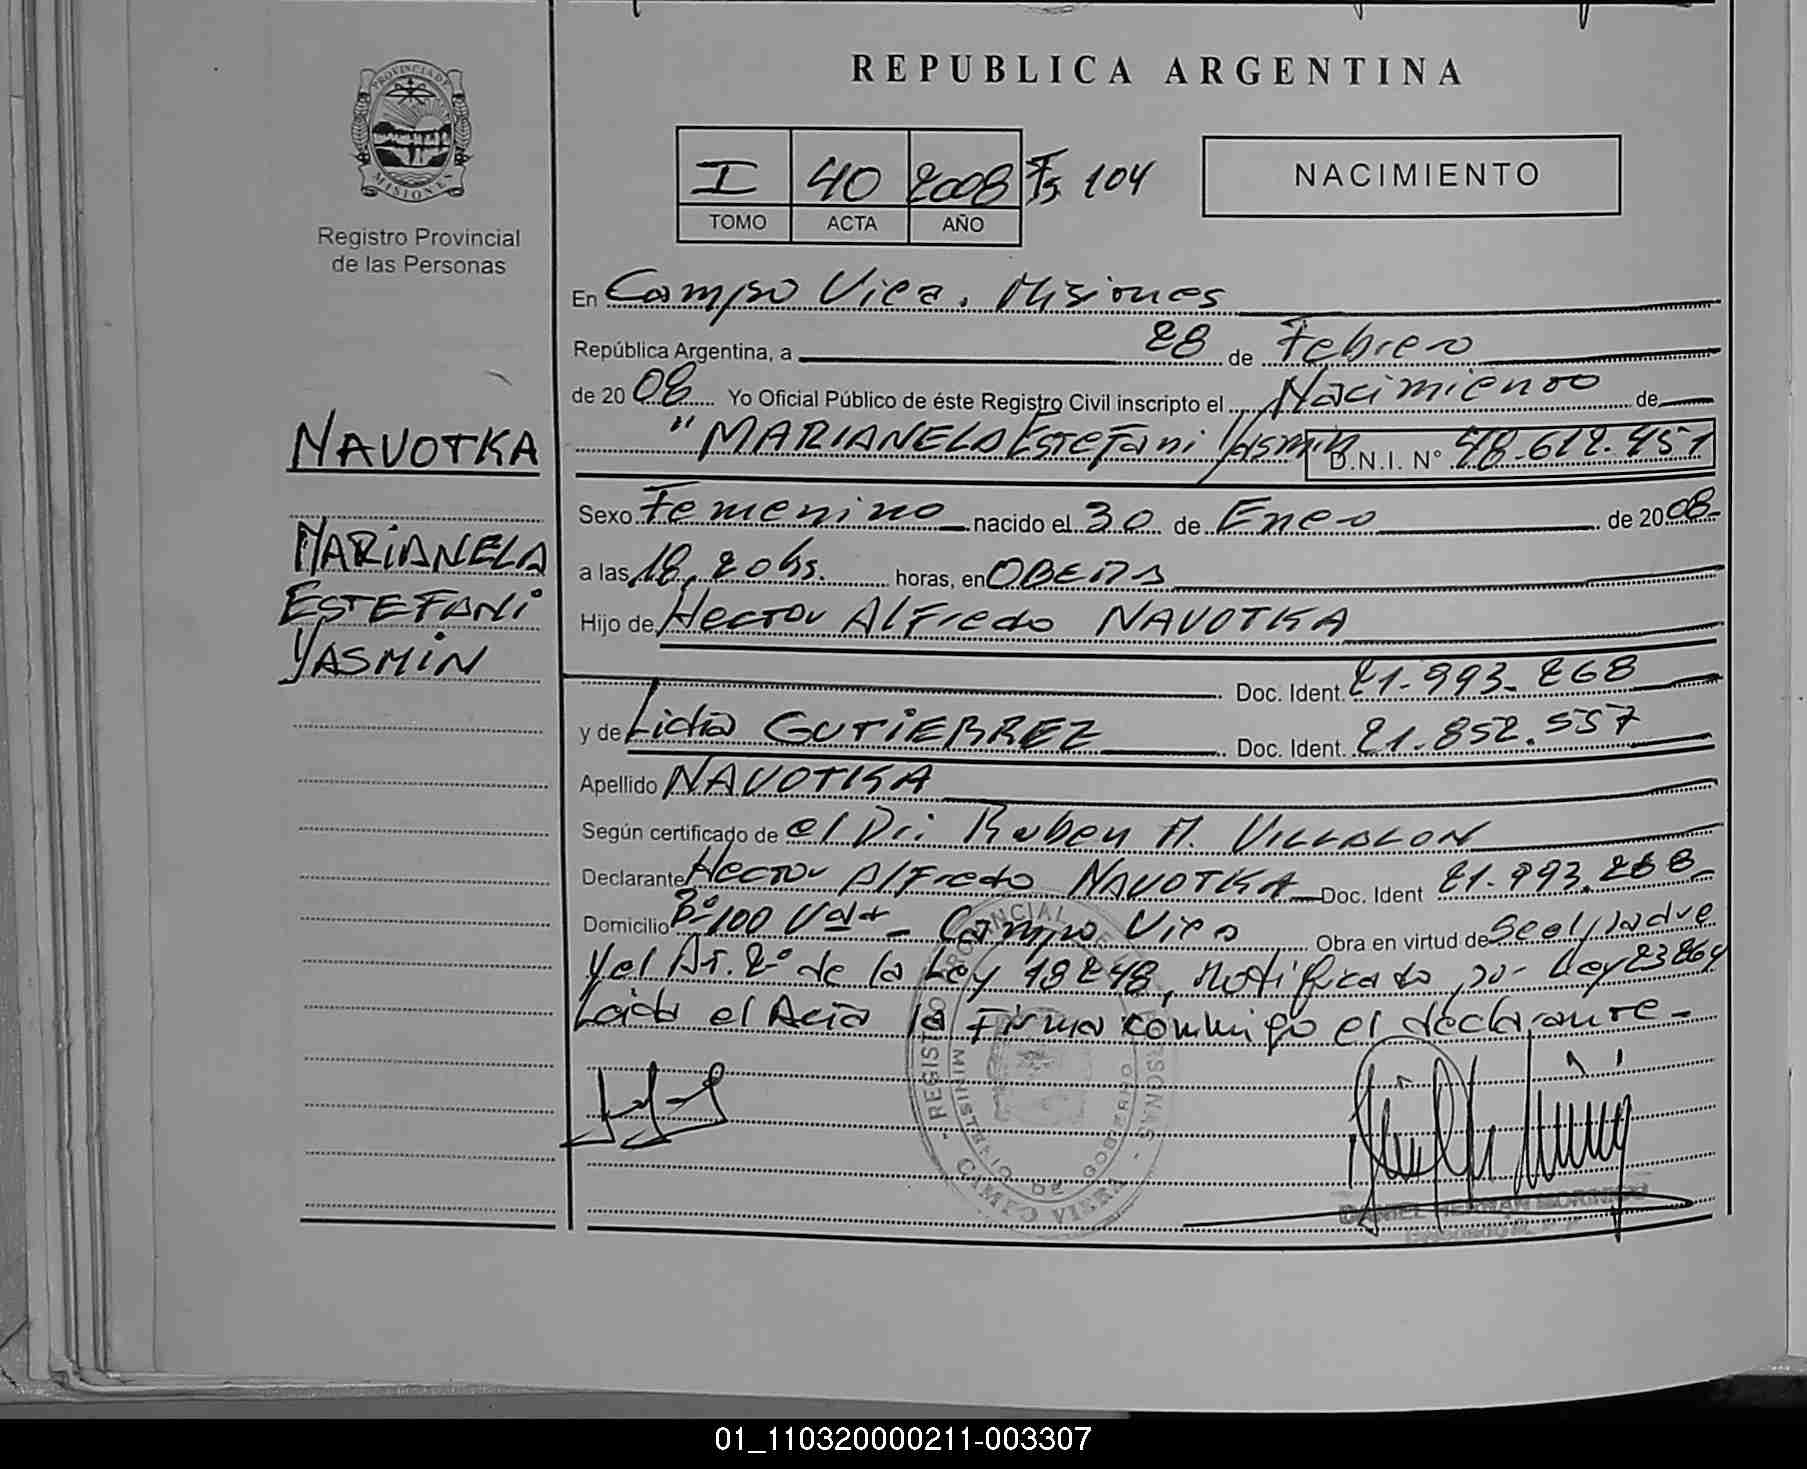 REPUBLICA ARGENTINA
PROVINCIA DE MISIONES
Registro Provincial
de las Personas
I 40 2008 Fs 104
TOMO ACTA AÑO
NACIMIENTO
NAVOTKA
MARIANELA
ESTEFANI
YASMIN
En Campo Viera. Misiones
República Argentina, a 28 de Febrero
de 2008 Yo Oficial Público de éste Registro Civil inscripto el Nacimiento de
"MARIANELA Estefani Yasmin D.N.I. N° 48.612.451
Sexo Femenino nacido el 30 de Enero de 2008
a las 18,20 hs. horas, en OBERA
Hijo de Hector Alfredo NAVOTKA
Doc. Ident. 21.993.268
y de Lidia GUTIERREZ Doc. Ident. 21.852.557
Apellido NAVOTKA
Según certificado de el Dr: Ruben A. VILLALON
Declarante Hector Alfredo NAVOTKA Doc. Ident 21.993.268
Domicilio B° 100 Campo Viera Obra en virtud de Ser el padre
y el Ar. 2° de la Ley 18248, Notificado por Ley 23264
Leida el Acta la Firma conmigo el declarante -
REGISTRO PROVINCIAL DE PERSONAS
MINISTERIO DE GOBIERNO
CAMPO VIERA
DANIEL HERNAN MORINIGO
01_110320000211-003307